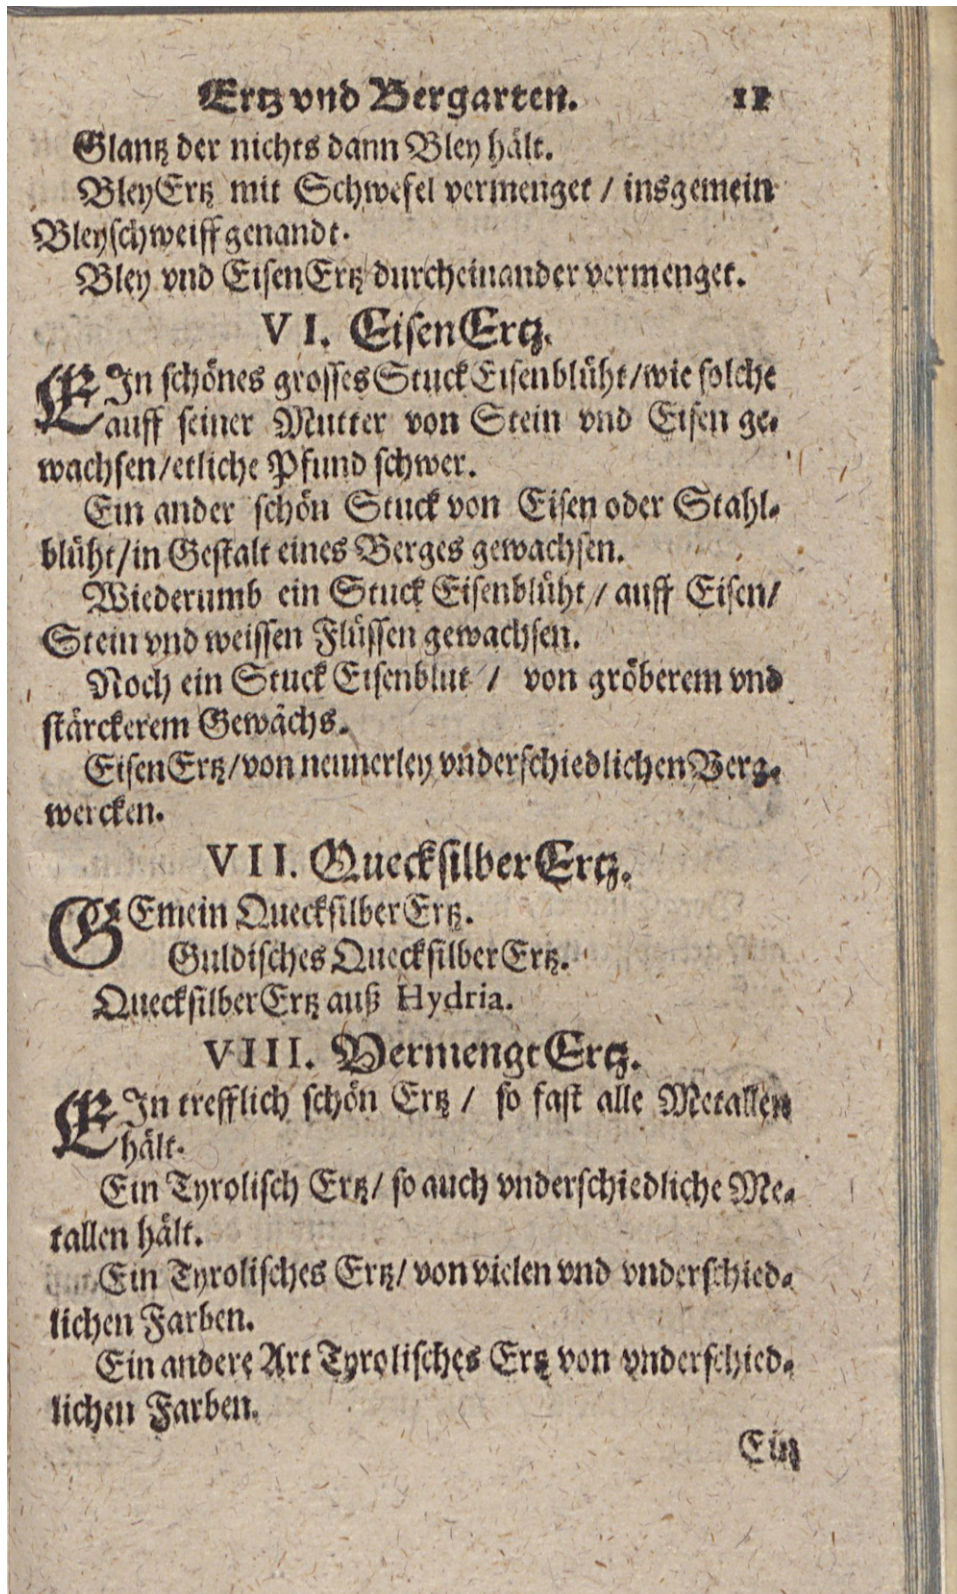 Ertz vnd Bergarten. 11
Glantz der nichts dann Bley hält.
BleyErtz mit Schwefel vermenget / insgemein
Bleyschweiff genandt.
Bley vnd EisenErtz durcheinander vermenget.
VI. EisenErtz.
EIn schönes grosses Stuck Eisenblüht/wie solche
auff seiner Mutter von Stein vnd Eisen ge-
wachsen/etliche Pfund schwer.
Ein ander schön Stuck von Eisen oder Stahl-
blüht/in Gestalt eines Berges gewachsen.
Wiederumb ein Stuck Eisenblüht / auff Eisen/
Stein vnd weissen Flüssen gewachsen.
Noch ein Stuck Eisenblut / von gröberem vnd
stärckerem Gewächs.
EisenErtz/von neunerley vnderschiedlichen Berg-
wercken.
VII. QuecksilberErtz.
GEmein QuecksilberErtz.
Guldisches QuecksilberErtz.
QuecksilberErtz auß Hydria.
VIII. VermengtErtz.
EIn trefflich schön Ertz / so fast alle Metallen
hält.
Ein Tyrolisch Ertz/ so auch vnderschiedliche Me-
tallen hält.
Ein Tyrolisches Ertz/ von vielen vnd vnderschied-
lichen Farben.
Ein andere Art Tyrolisches Ertz von vnderschied-
lichen Farben.
Ein